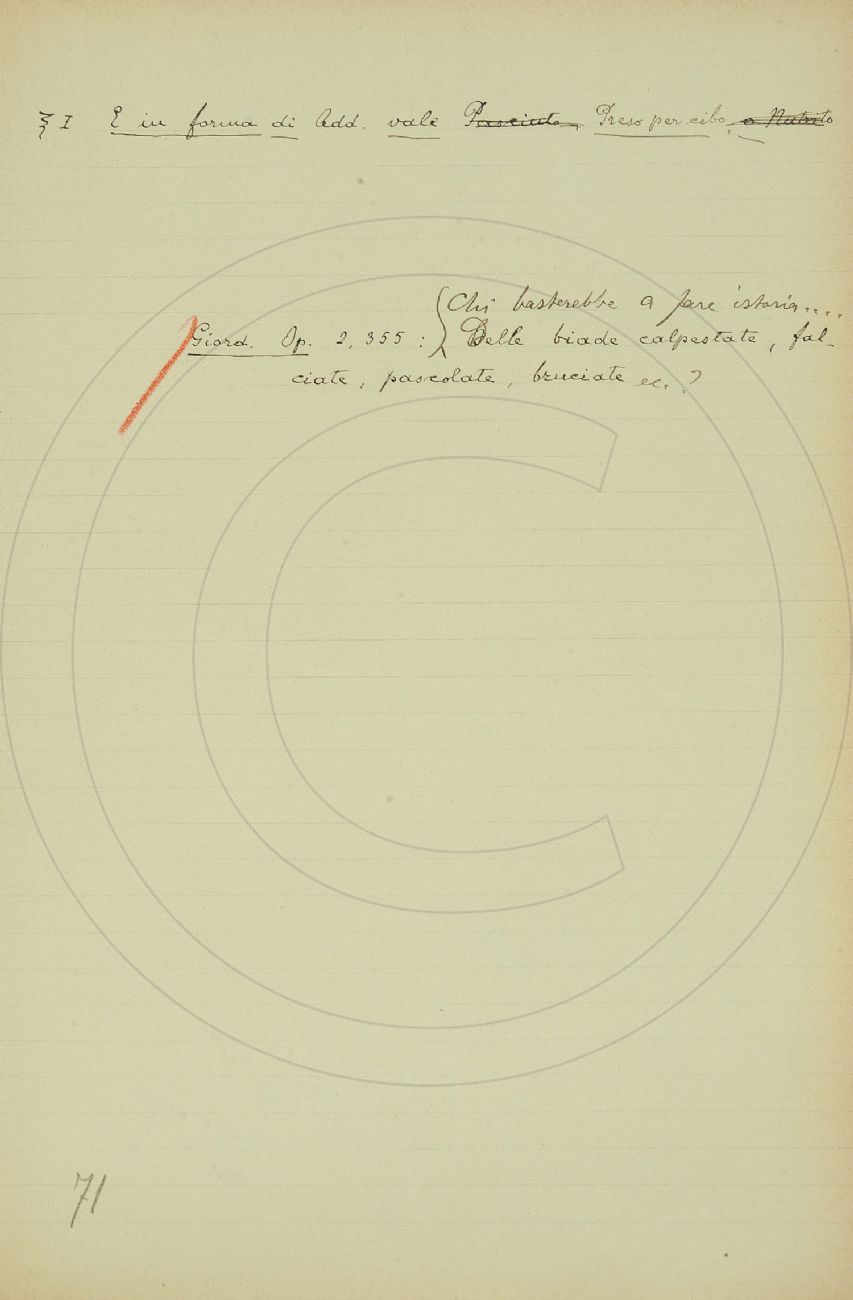 § I E in forma di Add. vale Pasciuto, Preso per cibo. o Nutrito
Chi basterebbe a fare istoria....
Giord. Op. 2, 355 : Delle biade calpestate, fal-
ciate, pascolate, bruciate ec. ?
71